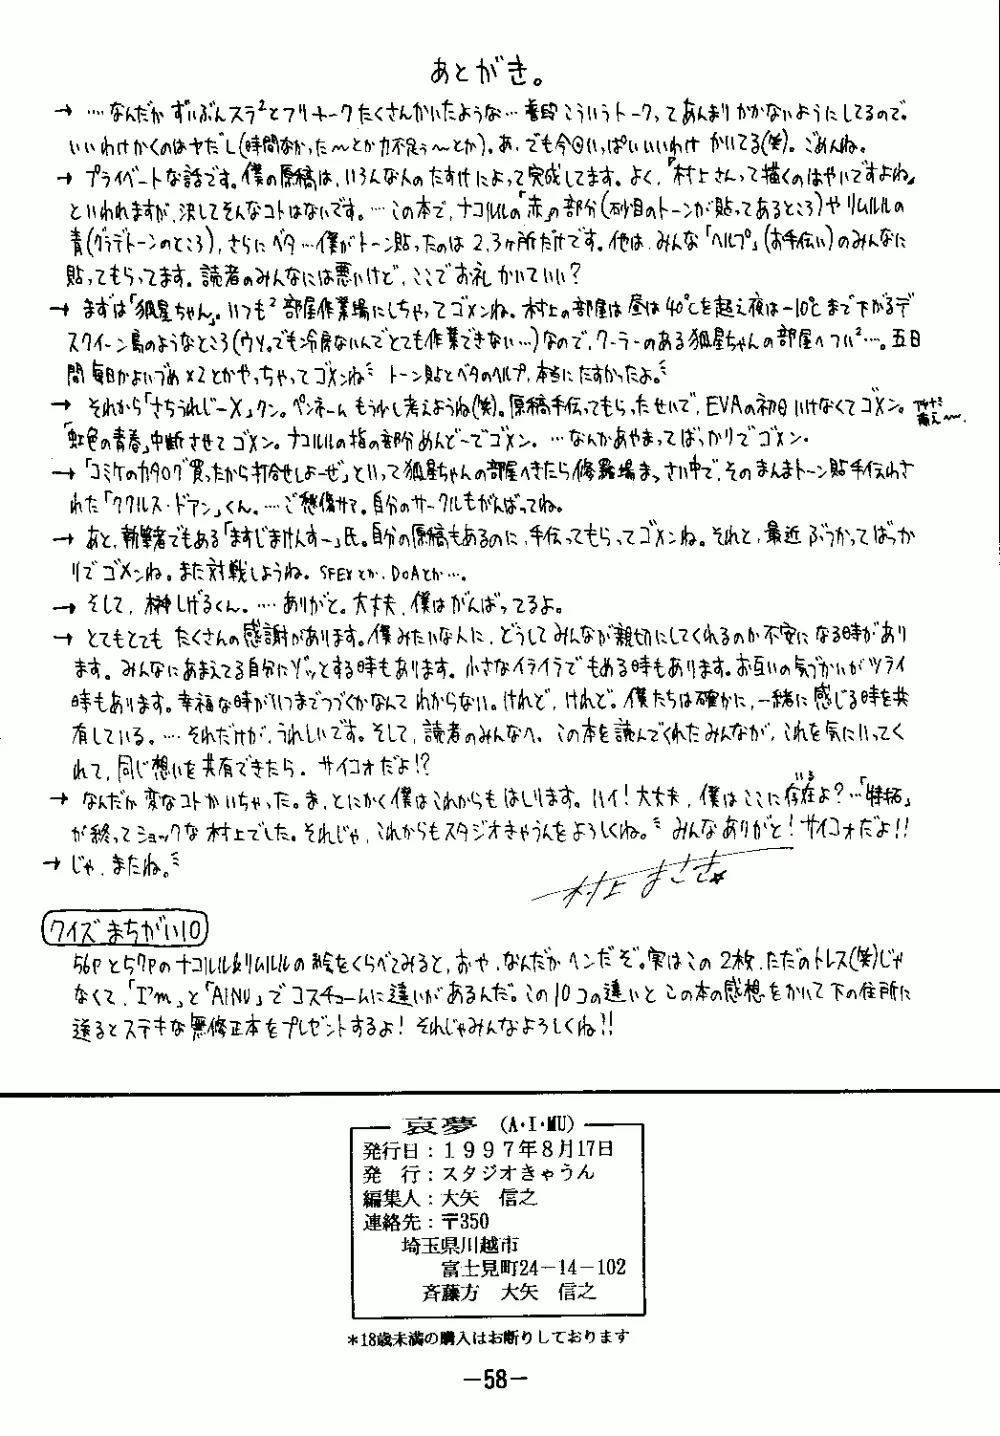 あとがき。
→ …なんだか ずいぶんスラ²とフリートーク たくさんかいたような… 普段こういうトークってあんまりかかないようにしてるので。
いいわけかくのはヤだし(時間なかった〜とか力不足ぅ〜とか)。あ、でも今回いっぱいいいわけ かいてる(笑)。ごめんね。
→ プライベートな話です。僕の原稿は、いろんな人のたすけによって完成してます。よく、「村上さんって描くのはやいですよね」
といわれますが、決してそんなコトはないです。…この本で、ナコルルの「赤」の部分(砂目のトーンが貼ってあるところ)やリムルルの
青(グラデトーンのところ)、さらにベタ…僕がトーン貼ったのは2、3ヶ所だけです。他は、みんな「ヘルプ」(お手伝い)のみんなに
貼ってもらってます。読者のみんなには悪いけど、ここでお礼かいていい?
→ まずは「狐星ちゃん」。いつも² 部屋作業場にしちゃってゴメンね。村上の部屋は昼は40℃を超え夜は-10℃まで下がるデ
スクイーン島のようなところ(ウソ。でも冷房ないんでとても作業できない…)なので、クーラーのある狐星ちゃんの部屋へつい²…。五日
間毎日かよいづめ×2とかやっちゃってゴメンね トーン貼とベタのヘルプ、本当にたすかったよ。
→ それから「さちうれじーX」クン。ペンネームもう少し考えようね(笑)。原稿手伝ってもらったせいで、EVAの初日いけなくてゴメン。
「虹色の青春」中断させてゴメン。ナコルルの指の部分めんどーでゴメン。…なんかあやまってばっかりでゴメン。
→「コミケのカタログ買ったから打合せしよーぜ」といって狐星ちゃんの部屋へきたら修羅場まっさい中で、そのまんまトーン貼手伝わさ
れた「ククルス・ドアン」くん。…ご愁傷サマ。自分のサークルもがんばってね。
→ あと、執筆者でもある「ますじまけんすー」氏。自分の原稿もあるのに、手伝ってもらってゴメンね。それと、最近 ぶつかってばっか
りでゴメンね。また対戦しようね。SFEXとか、DOAとか…。
→ そして、榊しげるくん。…ありがと。大丈夫、僕はがんばってるよ。
→ とてもとても たくさんの感謝があります。僕みたいな人に、どうしてみんなが親切にしてくれるのか不安になる時があり
ます。みんなにあまえてる自分にゾッとする時もあります。小さなイライラでもめる時もあります。お互いの気づかいがツライ
時もあります。幸福な時がいつまでつづくかなんてわからない。けれど、けれど。僕たちは確かに、一緒に感じる時を共
有している。…それだけが、うれしいです。そして、読者のみんなへ。この本を読んでくれたみんなが、これを気にいってく
れて、同じ想いを共有できたら、サイコォだよ!?
→ なんだか変なコトかいちゃった。ま、とにかく僕はこれからもはしります。ハイ!大丈夫、僕はここに存在よ?…「特拓」
が終ってショックな村上でした。それじゃ、これからもスタジオきゃうんをよろしくね。みんなありがと!サイコォだよ!!
→ じゃ、またね。
村上 まさき☆
クイズまちがい10
56Pと57Pのナコルル&リムルルの絵をくらべてみると、おや、なんだかヘンだぞ。実はこの2枚、ただのトレス(笑)じゃ
なくて、「I'm」と「AINU」でコスチュームに違いがあるんだ。この10コの違いとこの本の感想をかいて下の住所に
送るとステキな無修正本をプレゼントするよ! それじゃみんなよろしくね!!
哀夢 (A・I・MU)
発行日:1997年8月17日
発 行:スタジオきゃうん
編集人:大矢 信之
連絡先:〒350
埼玉県川越市
富士見町24-14-102
斉藤方 大矢 信之
*18歳未満の購入はお断りしております
-58-